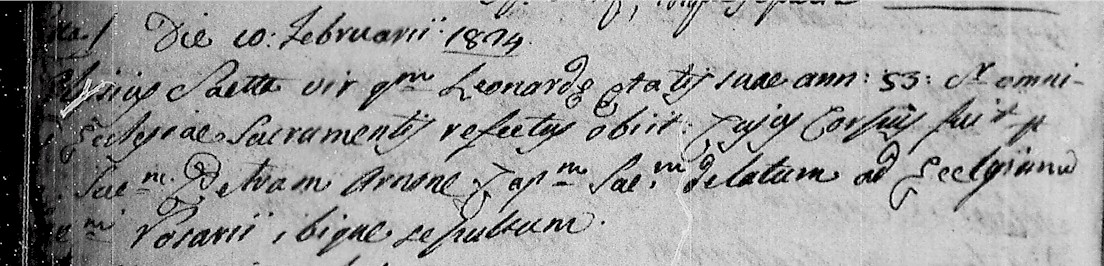 Die 10: Februarii 1824.
Saetta vir qm Leonardi etatis suae ann: 53: SS omni-
Ecclesiae Sacramentis refectus obiit. Cujus Corpus fuit p
Sacm. D. Petrum Arnone Capm Sacm delatum ad Ecclesiam
mi Rosarii ibique sepultum.